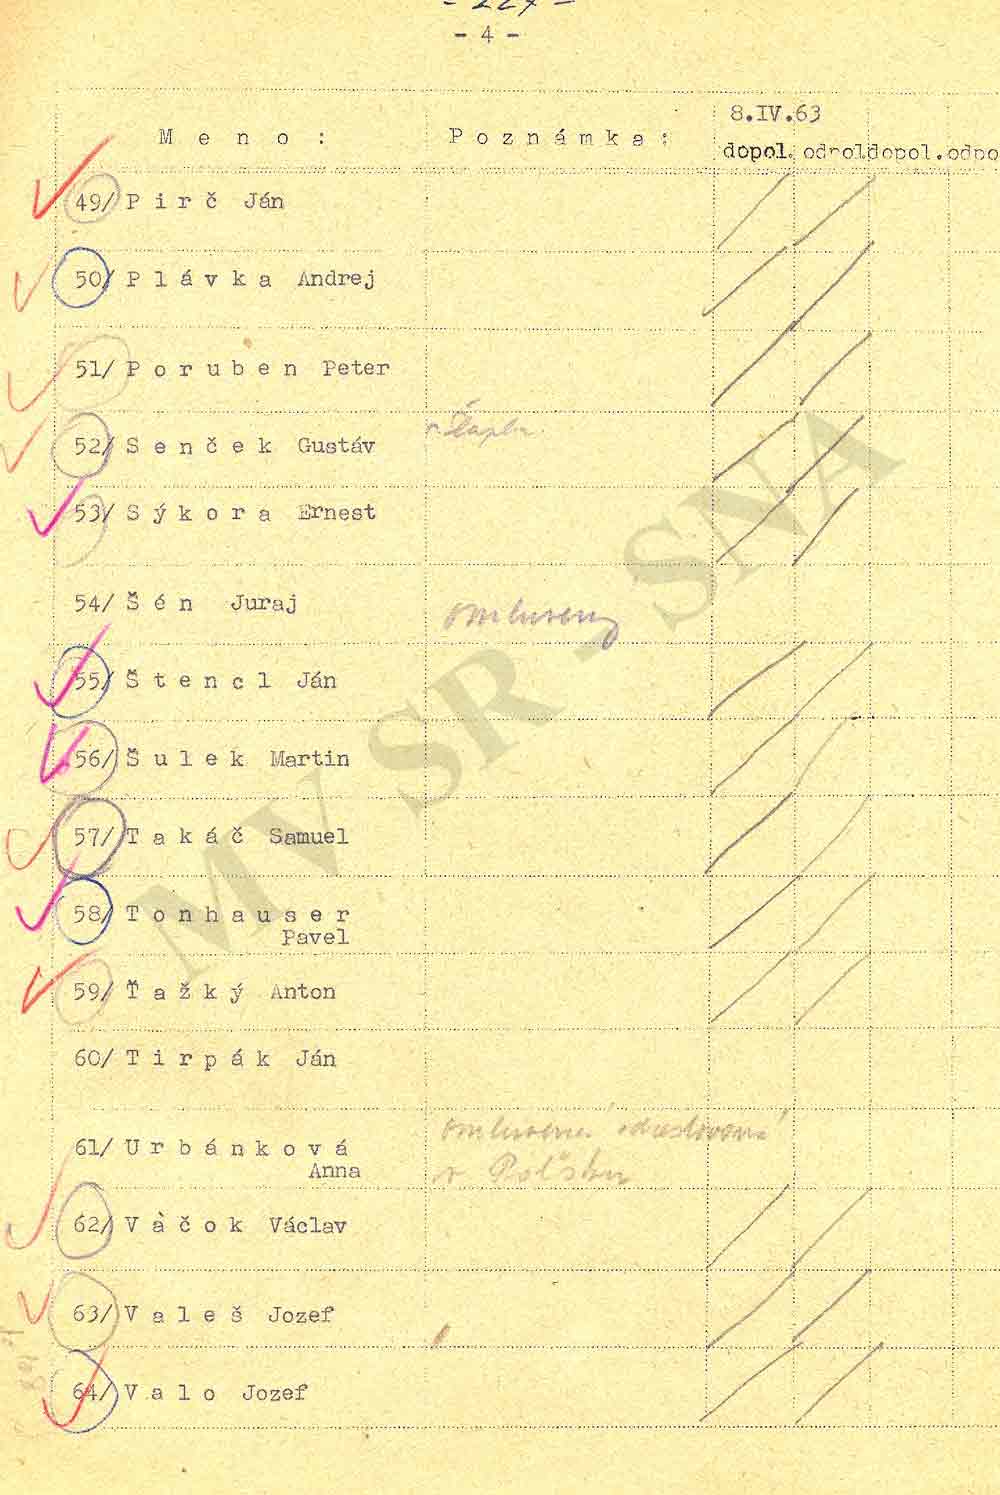 - 227 -
- 4 -
8.IV.63
Meno: Poznámka: dopol. odpol dopol. odpo
49/ Pirč Ján
50/ Plávka Andrej
51/ Poruben Peter
52/ Senček Gustáv
53/ Sýkora Ernest
54/ Šén Juraj omluveny
55/ Štencl Ján
56/ Šulek Martin
57/ Takáč Samuel
58/ Tonhauser
Pavel
59/ Ťažký Anton
60/ Tirpák Ján
61/ Urbánková omluvená
Anna v Poľsku
62/ Vàčok Václav
63/ Valeš Jozef
64/ Valo Jozef
MV SR - SNA